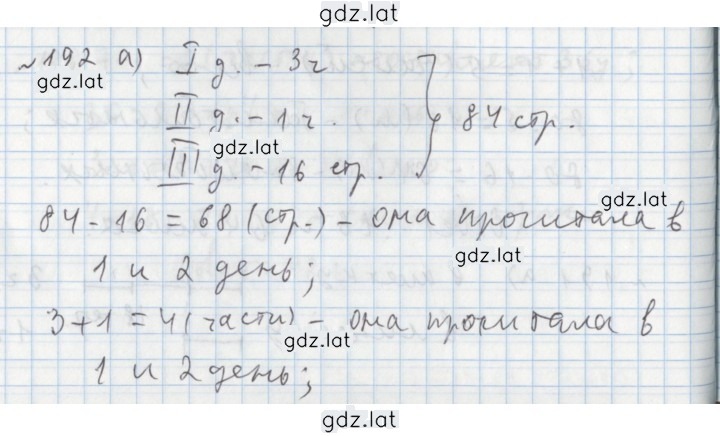 gdz.lat
№192 а) I д. - 3 ч
gdz.lat
II д. - 1 ч. } 84 стр.
gdz.lat
III д - 16 стр.
gdz.lat
84-16 = 68 (стр.) - она прочитала в
gdz.lat
1 и 2 день;
3+1=4 (части) - она прочитала в
gdz.lat
1 и 2 день;
gdz.lat